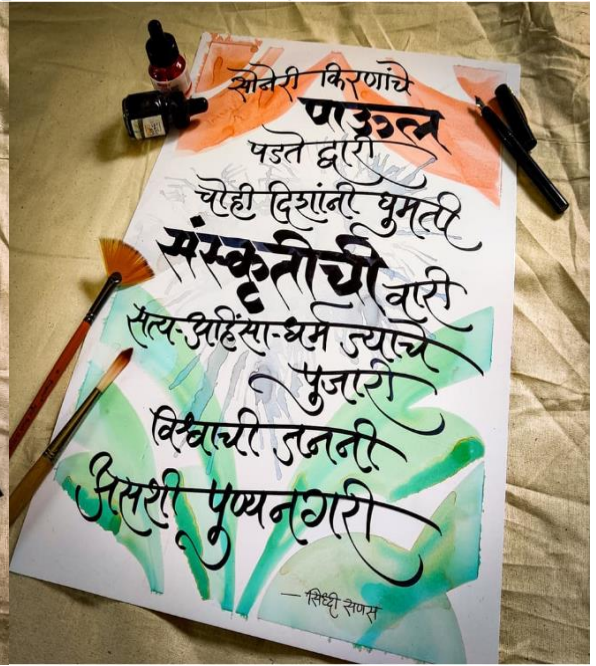 सोनेरी किरणांचे
पाऊल
पडते द्वारी
चोही दिशांनी घुमती
संस्कृतीची वारी
सत्य-अहिंसा-धर्म ज्याचे
पुजारी
विश्वाची जननी
अससी पुण्यनगरी
- सिध्दी सणस